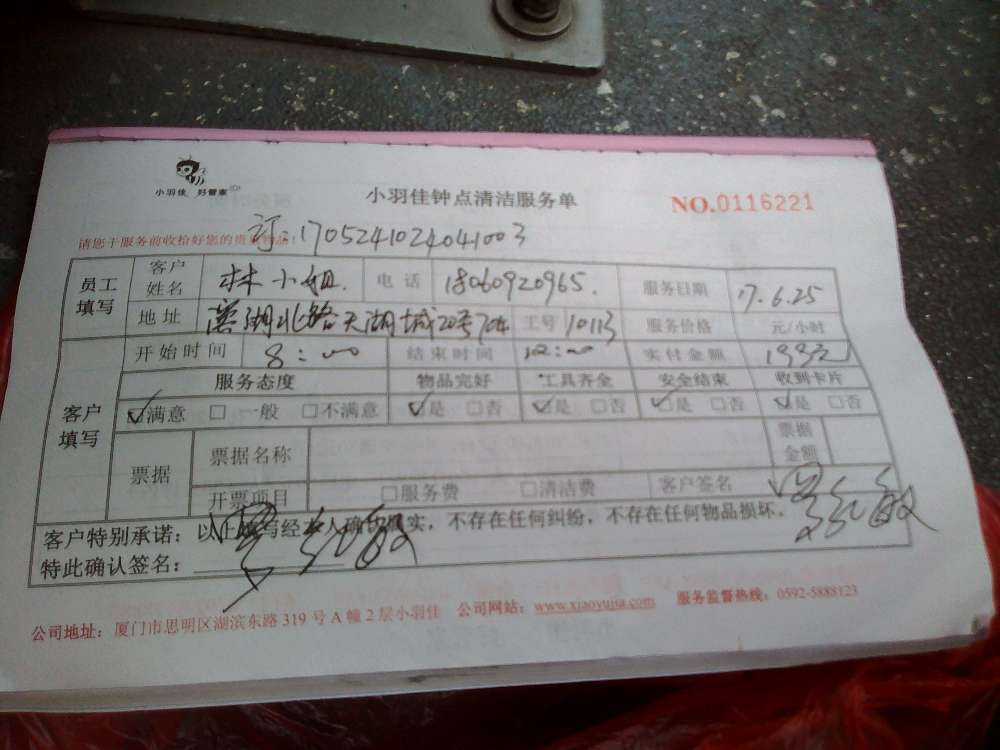 小羽佳 好管家
小羽佳钟点清洁服务单
NO.0116221
订:170524102404l003
请您于服务前收拾好您的贵重物品!
员工填写 客户姓名 林小姐. 电话 18060920965. 服务日期 17.6.25
地址 湖北路天湖城20号704 工号 10113 服务价格 元/小时
客户填写 开始时间 8:00 结束时间 12:00 实付金额 133元
服务态度 物品完好 工具齐全 安全结束 收到卡片
☑满意 □一般 □不满意 ☑是 □否 ☑是 □否 ☑是 □否 ☑是 □否
票据 票据名称 票据金额
开票项目 □服务费 □清洁费 客户签名
客户特别承诺:以上填写经本人确认属实,不存在任何纠纷,不存在任何物品损坏。
特此确认签名:
公司地址:厦门市思明区湖滨东路319号A幢2层小羽佳 公司网站:www.xiaoyujia.com 服务监督热线:0592-5888123